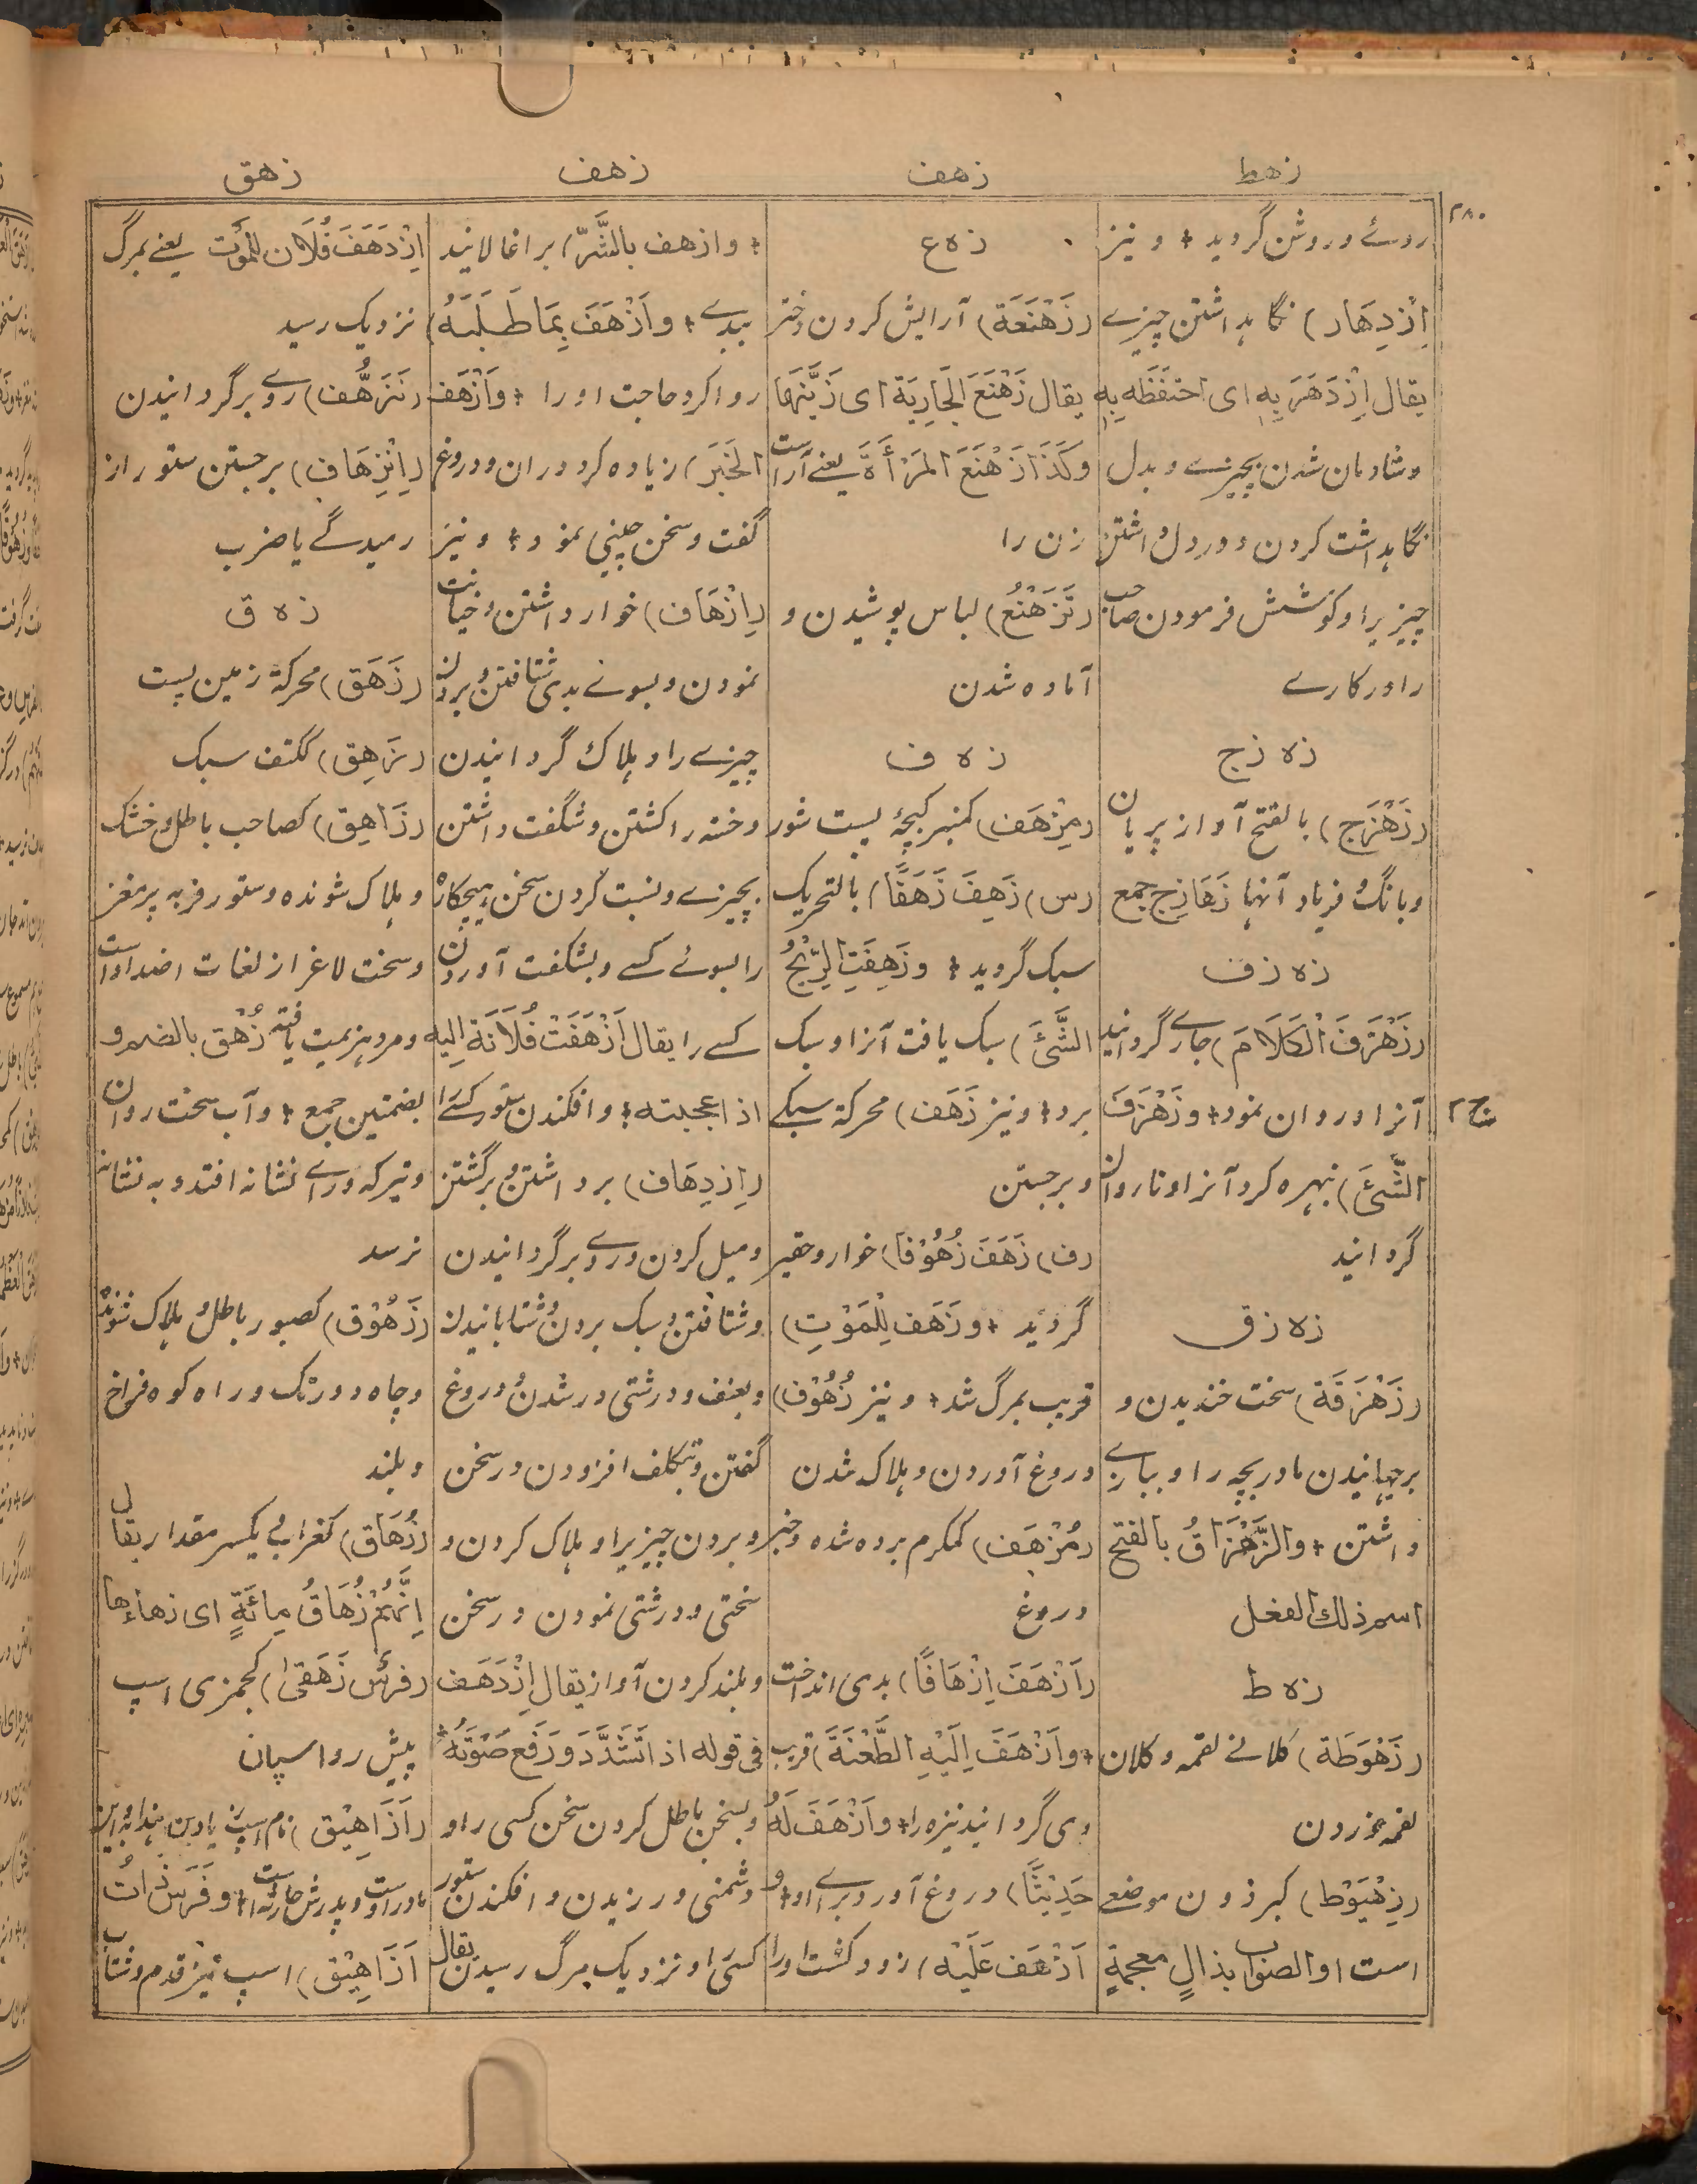 زهط
زهف
زهف
زهق
۲۸۰
روئے و روشن گردید + و نیز
اِزْدِهَار) نگاہداشتن چیزے
یقال اِزْدَهَرَ بِهٖ ای احتفَظَه بِهٖ
و شادمان شدن بچیزے و بدل
نگاہداشت کردن و در دل داشتن
چیزیرا و کوشش فرمودن صاحب
را در کارے
زه زج
(زَهْزَج) بالفتح آواز پریان
و بانگ و فریاد آنها زَهَازِج جمع
زه زف
(زَهْزَفَ الْکَلَامَ) جاری گردانید
آنرا و روان نمود + و زَهْزَفَ
الشَّیْءَ) نبهره کرد آنرا و ناروان
گردانید
زه زق
(زَهْزَقَة) سخت خندیدن و
برجهانیدن مادر بچه را و ببازی
داشتن + والزَّهْزَاقُ بالفتح
اسم ذلك الفعل
زه ط
(زَهْوَطَة) کلانے لقمه و کلان
لقمه خوردن
(زِهْیَوْط) کبرذون موضعے
است او الصواب بذالٍ معجمةٍ
زه ع
(زَهْنَعَة) آرایش کردن دختر
یقال زَهْنَعَ الجَارِیَة ای زَیَّنَهَا
وکَذَا زَهْنَعَ المَرْأَةَ یعنے آراست
زن را
(تَزَهْنُع) لباس پوشیدن و
آماده شدن
زه ف
(مِزْهَف) کمنبر کپچۂ پست شور
(س) زَهِفَ زَهَفًا) بالتحریک
سبک گردید + وزَهِفَتِ الرِّیْحُ
الشَّیْءَ) سبک یافت آنرا و سبک
برد + و نیز زَهَف) محرکة سبکے
و برجستن
(ف) زَهَفَ زُهُوْفًا) خوار و حقیر
گردید + وزَهَف لِلْمَوْتِ)
قریب بمرگ شد + و نیز زُهُوْف)
دروغ آوردن و ہلاک شدن
(مُزْهَف) کمکرم برده شده و خبر
دروغ
(اَزْهَفَ اِزْهَافًا) بدی انداخت
+ و اَزْهَفَ اِلَیْهِ الطَّعْنَةَ) قریب
وی گردانید نیزه را + و اَزْهَفَ لَهٗ
حَدِیْثًا) دروغ آورد برائے او + و
اَزْهَفَ عَلَیْهِ) زود کشت او را
+ و ازهف بالشَّرِّ) برآغالانید
ببدے + و اَزْهَفَ بِمَا طَلَبَهُ)
روا کرد حاجت او را + و اَزْهَفَ
الخَبَرَ) زیاده کرد دران و دروغ
گفت و سخن چینی نمود + و نیز
(اِزْهَاف) خوار داشتن و خیانت
نمودن و بسوئے بدی شتافتن و بردن
چیزے را و ہلاک گردانیدن
و خسته را کشتن و شگفت داشتن
بچیزے و نسبت کردن سخن ہیچکاره
را بسوئے کسے و بشگفت آوردن
کسے را یقال اَزْهَفَتْ فُلَانَة اِلیه
اذا عجبته + و افکندن ستور کسے را
(اِزدِهَاف) برداشتن و برگشتن
و میل کردن و روے برگردانیدن
و شتافتن و سبک بردن و شتابانیدن
و بعنف و درشتی درشدن و دروغ
گفتن و بتکلف افزودن در سخن
و بردن چیزیرا و ہلاک کردن و
سختی و درشتی نمودن در سخن
و بلند کردن آواز یقال اِزْدَهَف
فی قوله اذا تَشَدَّدَ و رَفَع صَوْتَهُ
و بسخن باطل کردن سخن کسی را و
دشمنی ورزیدن و افکندن ستور
کسی را و نزدیک مرگ رسیدن یقال
اِزْدَهَفَ فُلَان للمَوْت یعنے بمرگ
نزدیک رسید
(تَزَهُّف) روے برگردانیدن
(اِنْزِهَاف) برجستن ستور از
رمیدگے یا ضرب
زه ق
(زَهَق) محرکة زمین پست
(زَهِق) ککتف سبک
(زَاهِق) کصاحب باطل و خشک
و ہلاک شونده و ستور فربه پرمغز
و سخت لاغر از لغات اضداد است
و مرد ہزیمت یافته زُهْق بالضم و
بضمتین جمع + و آب سخت روان
و تیر که ورائے نشانه افتد و به نشانه
نرسد
(زَهُوْق) کصبور باطل و ہلاک شونده
و چاه دور تک و راه کوه فراخ
و بلند
(زُهَاق) کغراب یکسر مقدار یقال
اِنَّهُمْ زُهَاقُ مِائَةٍ ای زهاءها
(فرسٌ زَهَقیٰ) کجمزی اسپ
پیش رو اسپان
(اَزَاهِیْق) نام اسپ زیاد بن ہنداب و این
مادر او ست و پدرش حارثه است + و فَرَس ذاتُ
اَزَاهِیْق) اسپ تیز قدم و شتاب
ج ۲